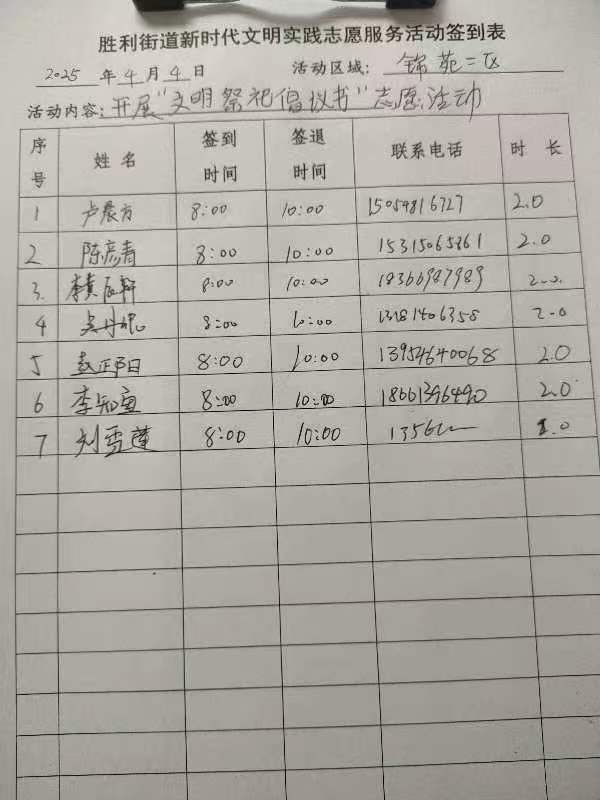 胜利街道新时代文明实践志愿服务活动签到表
2025 年 4 月 4 日 活动区域: 锦苑二区
活动内容: 开展"文明祭祀倡议书"志愿活动
序号 姓名 签到时间 签退时间 联系电话 时长
1 卢晨方 8:00 10:00 15054816727 2.0
2 陈彦青 8:00 10:00 15315065861 2.0
3. 李黄辰轩 8:00 10:00 18366987989 2.0.
4 8:00 10:00 13181406358 2.0
5 8:00 10:00 13954640068 2.0
6 李知鱼 8:00 10:00 18661396490 2.0
7 刘雪莲 8:00 10:00 2.0